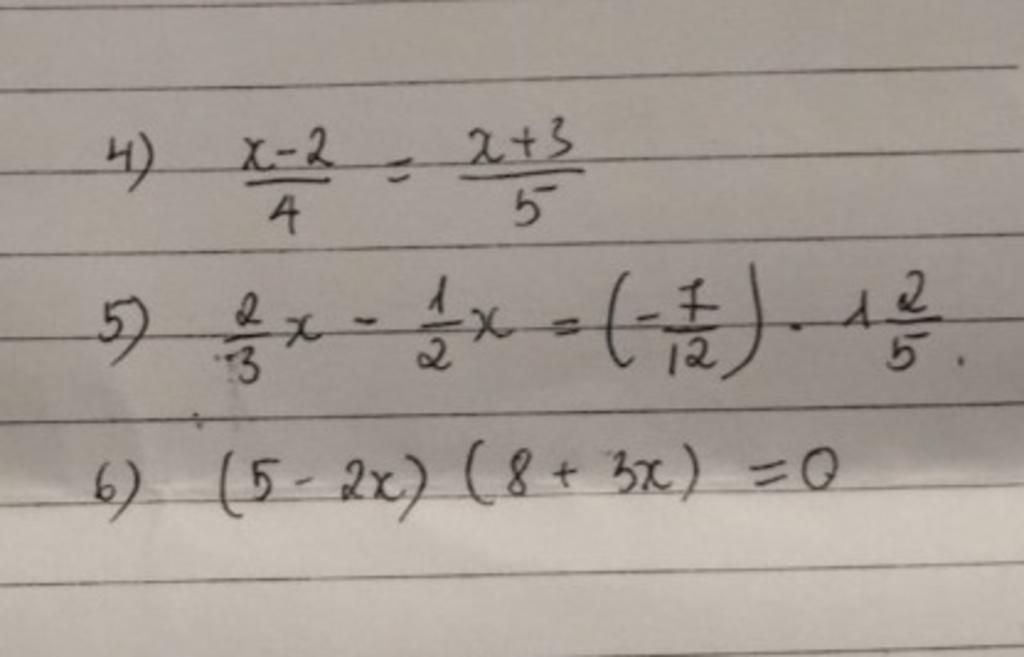 4) \frac{x-2}{4} = \frac{x+3}{5}
5) \frac{2}{3}x - \frac{1}{2}x = \left(-\frac{7}{12}\right) \cdot 1\frac{2}{5}.
6) (5 - 2x) (8 + 3x) = 0